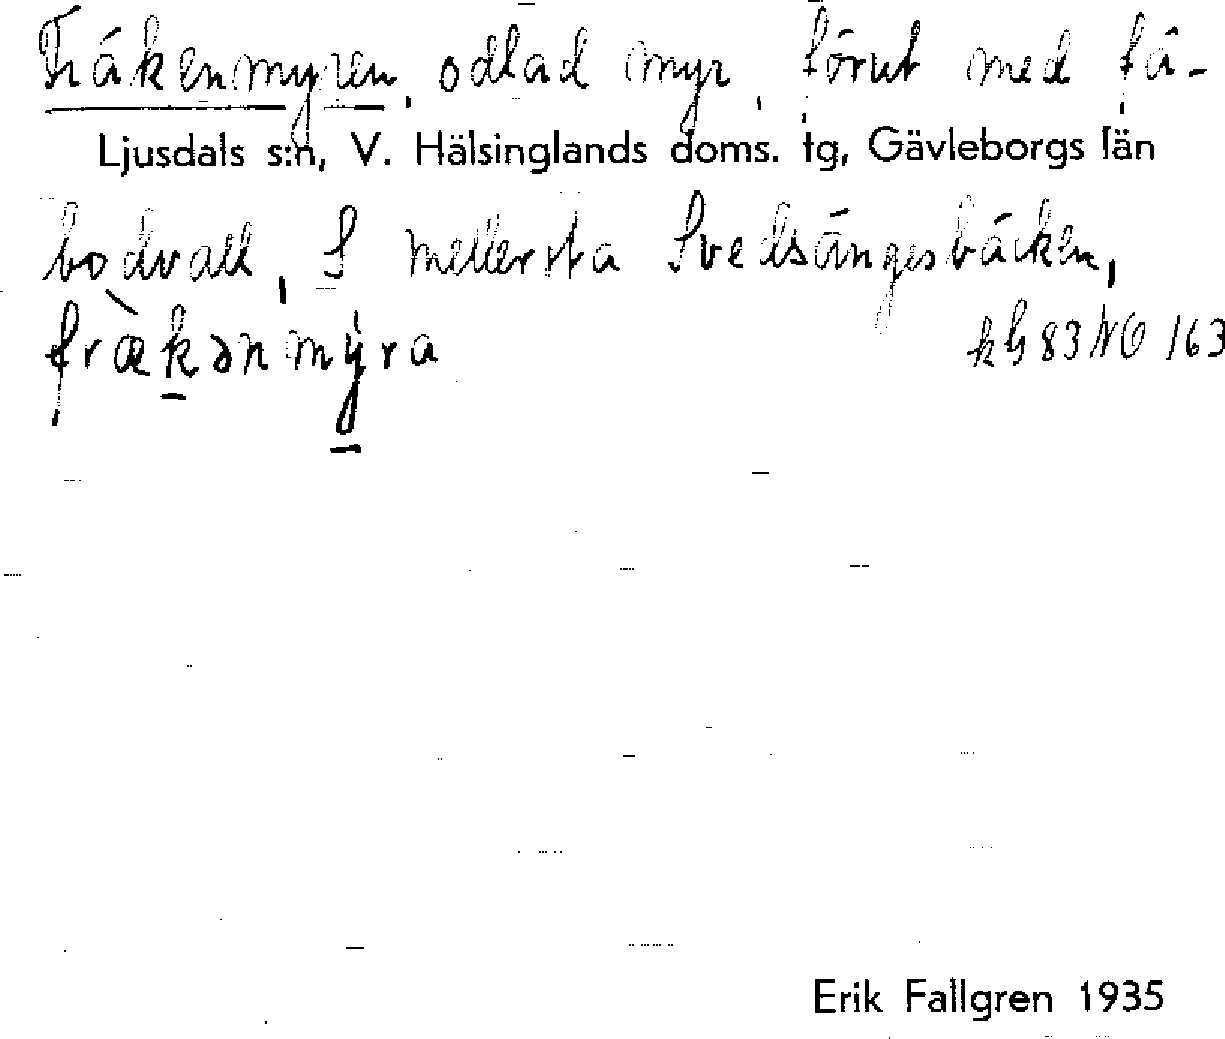 Fräkenmyren, odlad myr, förut med fä-
Ljusdals s:n, V. Hälsinglands doms. tg, Gävleborgs län
bodvall, S mellersta Svedsängesbäcken,
fræ̀kənmy̆ra kG 83 NO 163
Erik Fallgren 1935